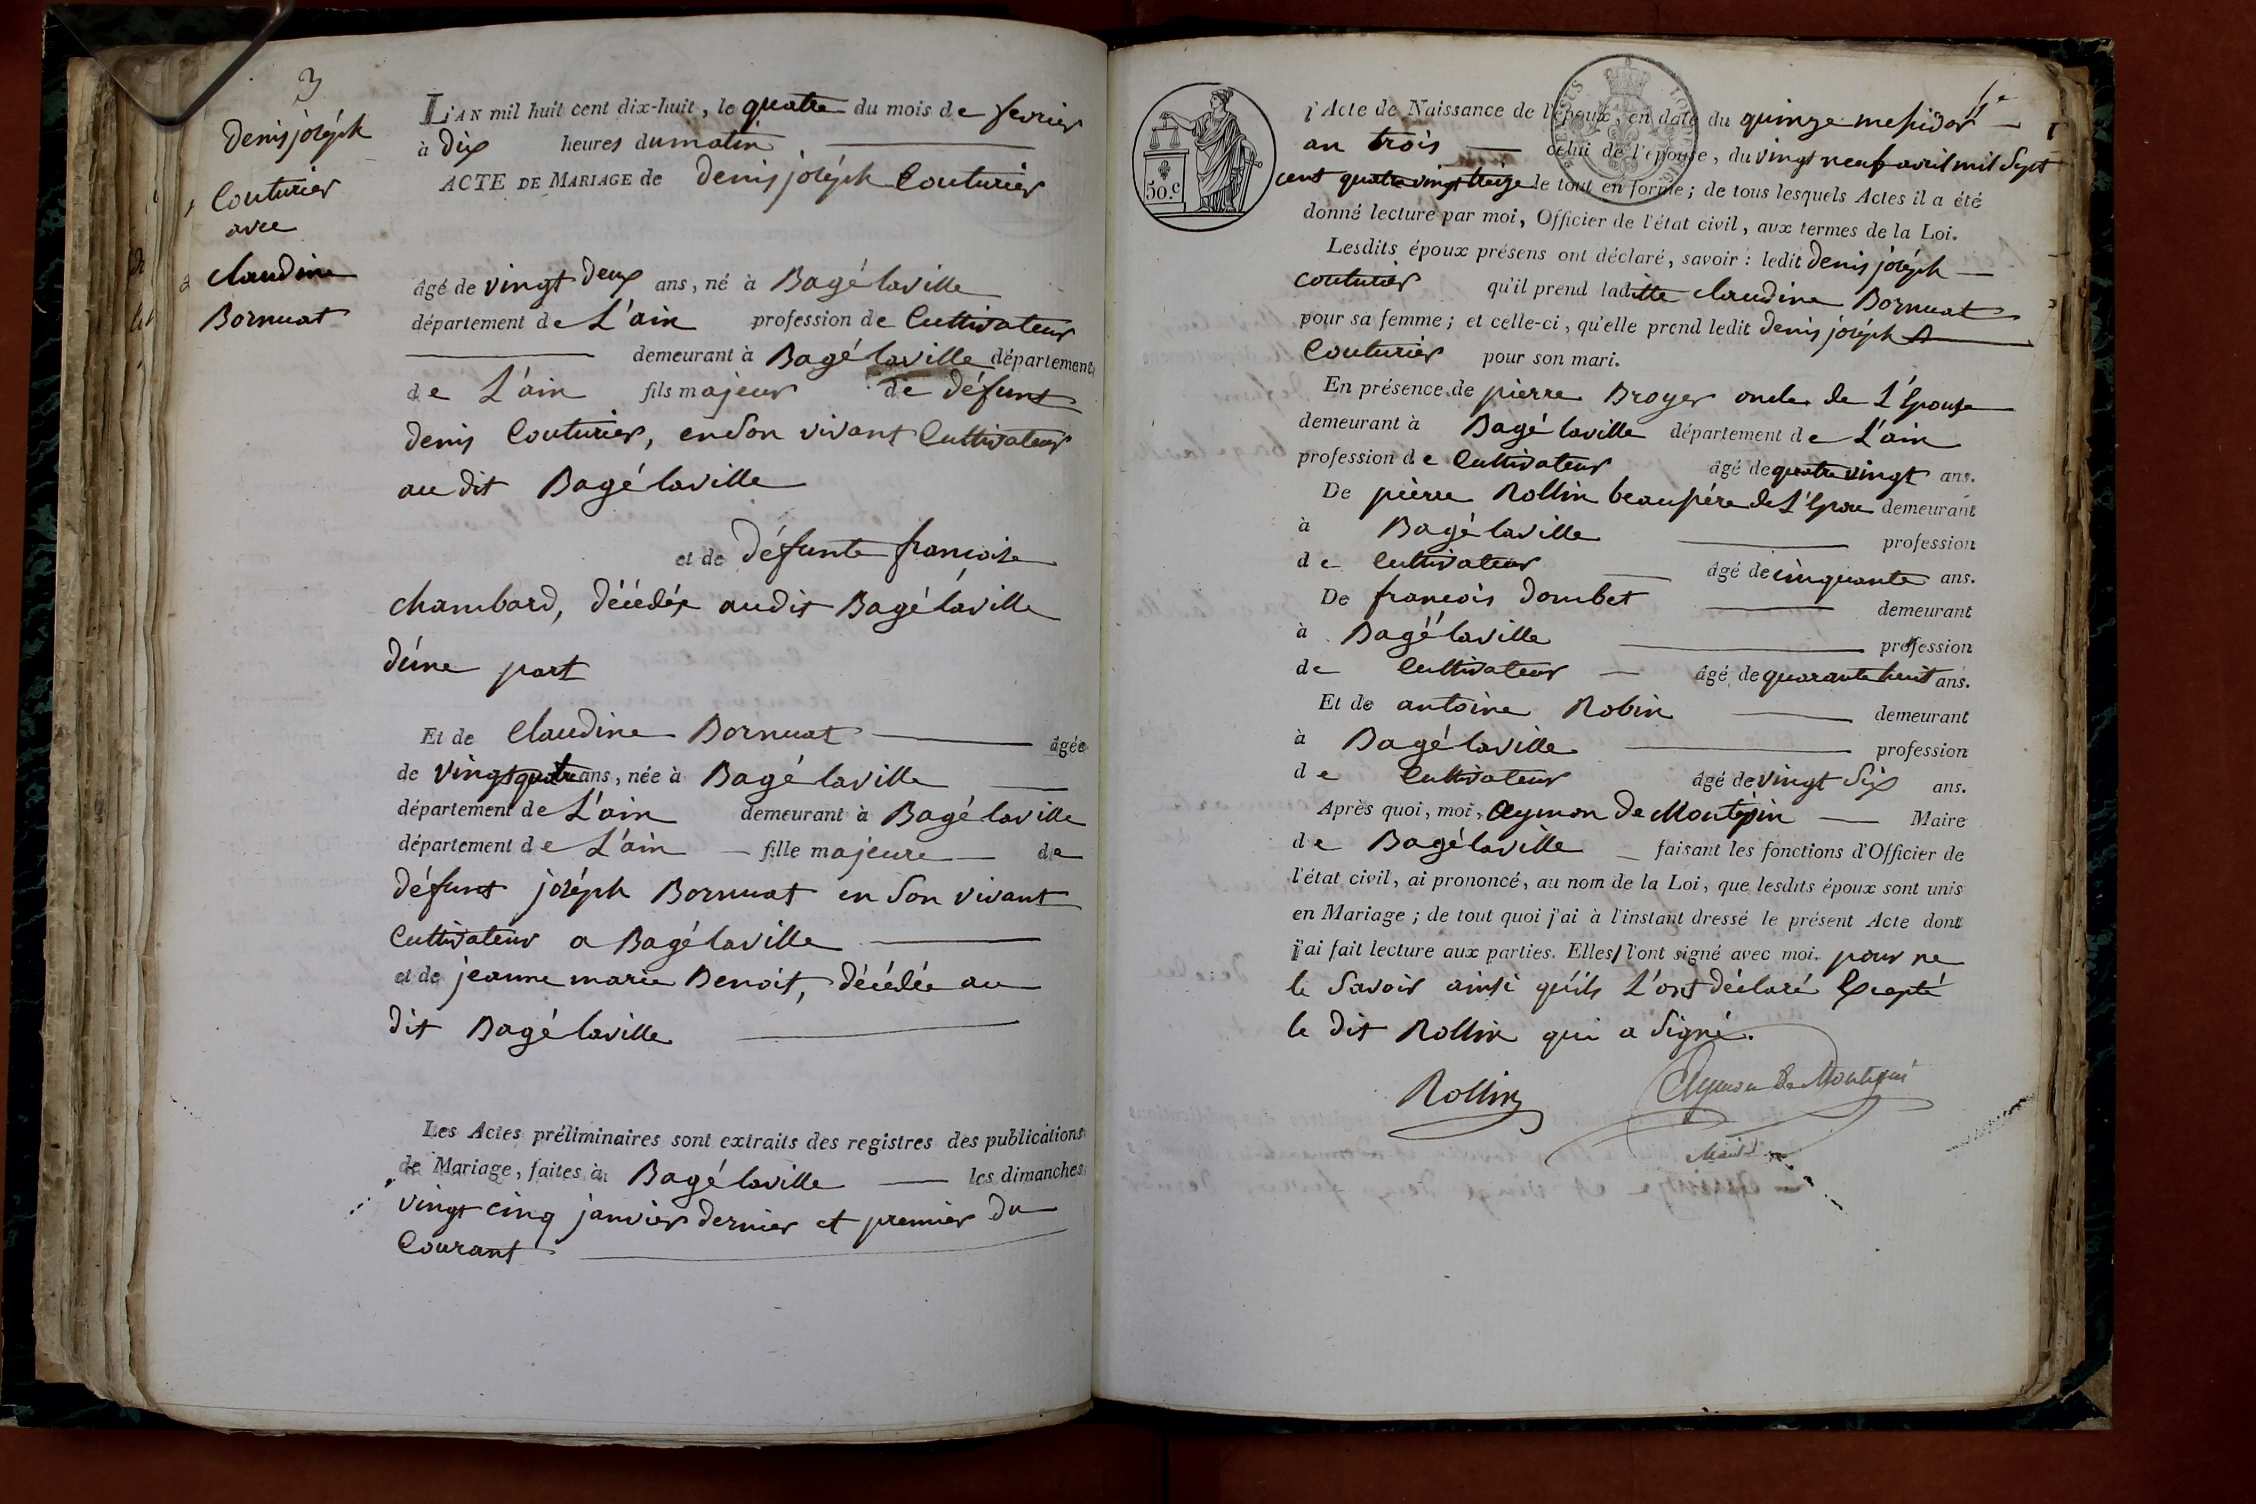 3
denis joseph
Couturier
avec
claudine
Bornuat
L'AN mil huit cent dix-huit, le quatre du mois de fevrier
à dix heures du matin
ACTE DE MARIAGE de denis joseph Couturier
âgé de vingt deux ans, né à Bagé laville
département de L'ain profession de Cultivateur
demeurant à Bagé laville département
de L'ain fils majeur de défunt
denis Couturier, en son vivant Cultivateur
au dit Bagé laville
et de défunte françoise
chambard, décédés audit Bagé laville
d'une part
Et de Claudine Bornuat âgée
de vingt quatre ans, née à Bagé laville
département de L'ain demeurant à Bagé laville
département de L'ain fille majeure de
défunt joséph Bornuat en son vivant
Cultivateur a Bagé laville
et de jeanne marie Benoit, décédée au
dit Bagé laville
Les Actes préliminaires sont extraits des registres des publications
de Mariage, faites à Bagé laville les dimanches
vingt cinq janvier dernier et premier du
Courant
50.c
l'Acte de Naissance de l'époux, en date du quinze messidor
an trois celui de l'épouse, du vingt neuf avril mil sept
cent quatre vingt treize le tout en forme; de tous lesquels Actes il a été
donné lecture par moi, Officier de l'état civil, aux termes de la Loi.
Lesdits époux présens ont déclaré, savoir: ledit denis joséph
couturier qu'il prend laditte claudine Bornuat
pour sa femme; et celle-ci, qu'elle prend ledit denis joséph
Couturier pour son mari.
En présence de pierre Broyer oncle de L'Epouse
demeurant à Bagé laville département de L'ain
profession de Cultivateur âgé de quatre vingt ans.
De pierre Rollin beaupére de L'Epoux demeurant
à Bagé laville profession
de Cultivateur âgé de cinquante ans.
De françois dombet demeurant
à Bagé laville profession
de Cultivateur âgé de quarante huit ans.
Et de antoine Robin demeurant
à Bagé laville profession
de Cultivateur âgé de vingt Six ans.
Après quoi, moi, Aymon de Montépin Maire
de Bagé laville faisant les fonctions d'Officier de
l'état civil, ai prononcé, au nom de la Loi, que lesdits époux sont unis
en Mariage; de tout quoi j'ai à l'instant dressé le présent Acte dont
j'ai fait lecture aux parties. Elles l'ont signé avec moi. pour ne
le Savoir ainsi qu'ils L'ont déclaré Excepté
le dit Rollin qui a Signé.
Rollin
Aymon de Montépin